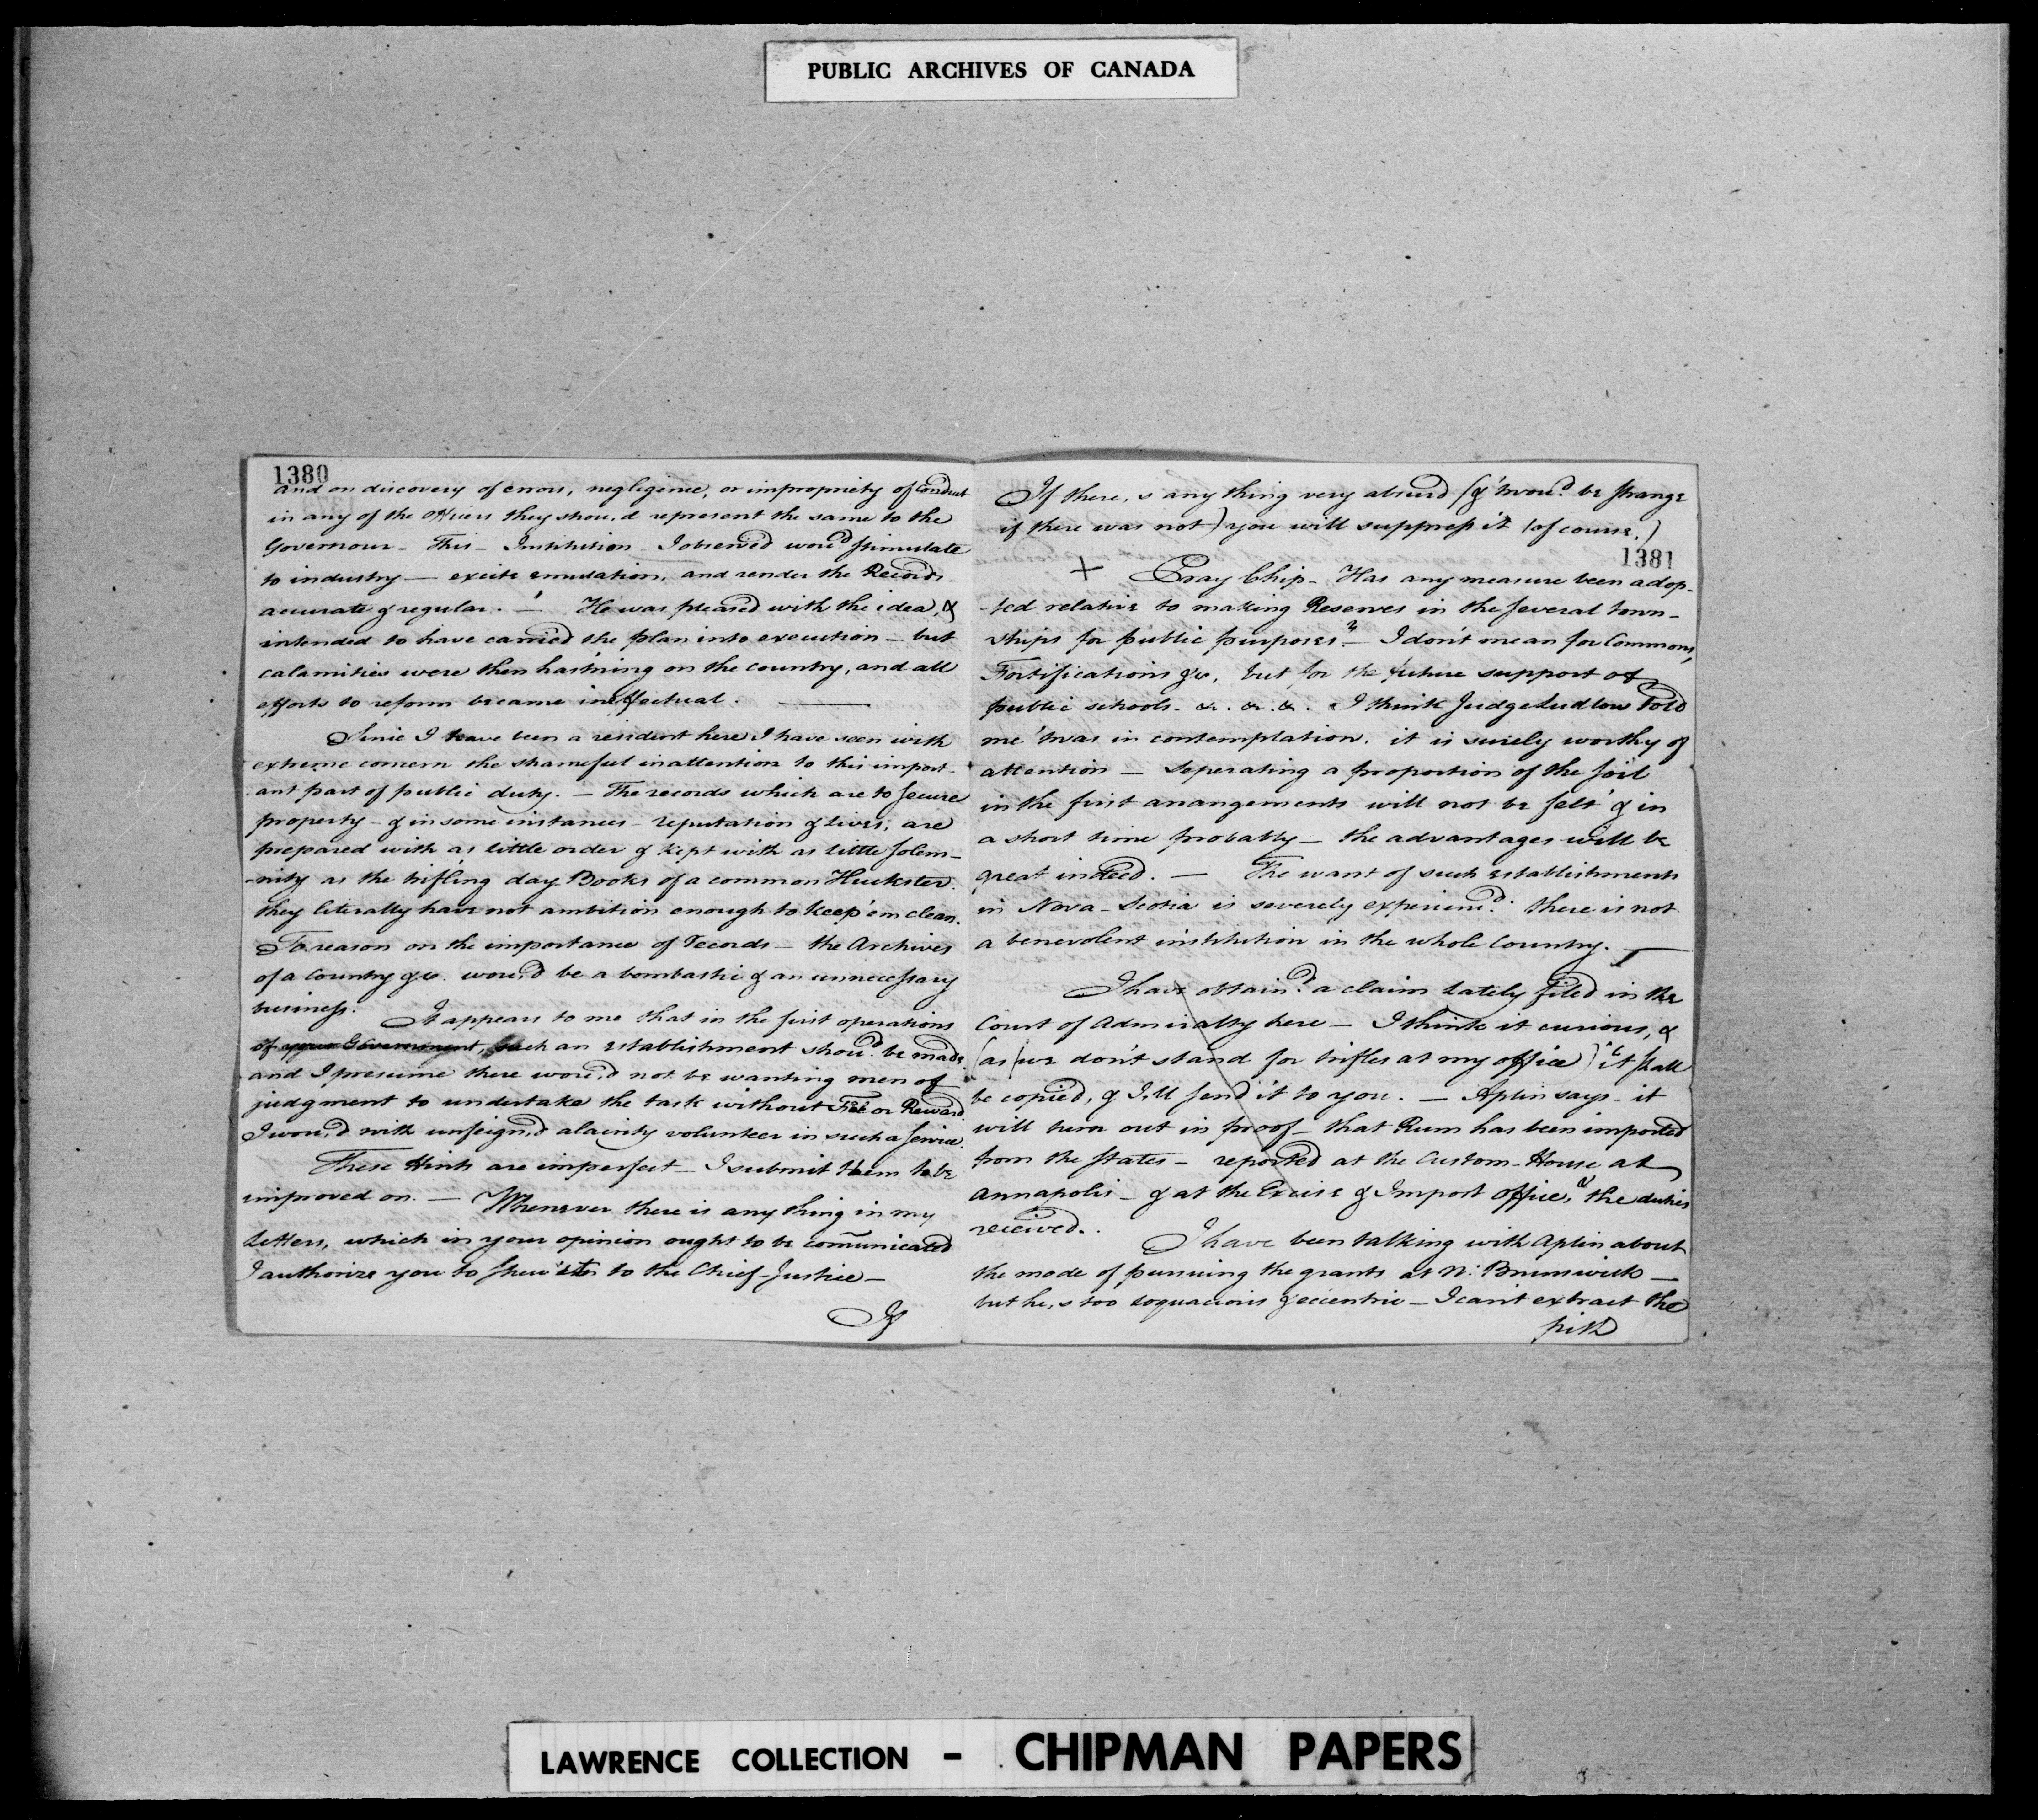 PUBLIC ARCHIVES OF CANADA
1380
and on discovery of errors, negligence, or impropriety of Conduct
in any of the officers they shou,d represent the same to the
Governour - This - Institution - I observed wou'd stimulate
to industry — excite emulation, and render the Records
accurate & regular. — He was pleased with the idea, &
intended to have carried the plan into execution - but
calamities were then hast'ning on the country, and all
efforts to reform became ineffectual. —
Since I have been a resident here I have seen with
extreme concern the shameful inattention to this import-
ant part of public duty. - The records which are to secure
property - & in some instances - reputation & lives; are
prepared with as little order & kept with as little solem-
-nity as the trifling day Books of a common Huckster.
they literally have not ambition enough to keep 'em clean.
To reason on the importance of records - the Archives
of a Country &c. wou,d be a bombastic & an unnecessary
business.
It appears to me that in the first operations
of your Government, such an establishment shou'd be made
and I presume there wou,d not be wanting men of
judgment to undertake the task without Fee or Reward
I wou,d with unfeign,d alacrity volunteer in such a service.
These Hints are imperfect - I submit them to be
improved on. — Whenever there is any thing in my
Letters, which in your opinion ought to be communicated
I authorize you to shew to the Chief-Justice —
If
If there,s any thing very absurd (& 'twou'd be strange
if there was not) you will suppress it (of course.)
1381
+ Pray Chip - Has any measure been adop-
-ted relative to making Reserves in the several town-
ships for public purposes? - I don't mean for Commons,
Fortifications &c, but for the future support of
public schools - &. &. &. I think Judge Ludlow told
me 'twas in contemplation. it is surely worthy of
attention — Seperating a proportion of the soil
in the first arrangements will not be felt & in
a short time probably - the advantages will be
great indeed. — The want of such establishments
in Nova-Scotia is severely experienc'd: there is not
a benevolent institution in the whole Country. —
I have obtain'd a claim lately filed in the
Court of Admiralty here - I think it curious, &
(as we don't stand for trifles at my office) it shall
be copied, & I,ll send it to you. — Aplin says - it
will turn out in proof - that Rum has been imported
from the States - reported at the Custom-House at
Annapolis - & at the Excise & Impost office, & the duties
received.
I have been talking with Aplin about
the mode of pursuing the grants at N: Brunswick —
but he,s too loquacious & eccentric - I can't extract the
pith
LAWRENCE COLLECTION - CHIPMAN PAPERS